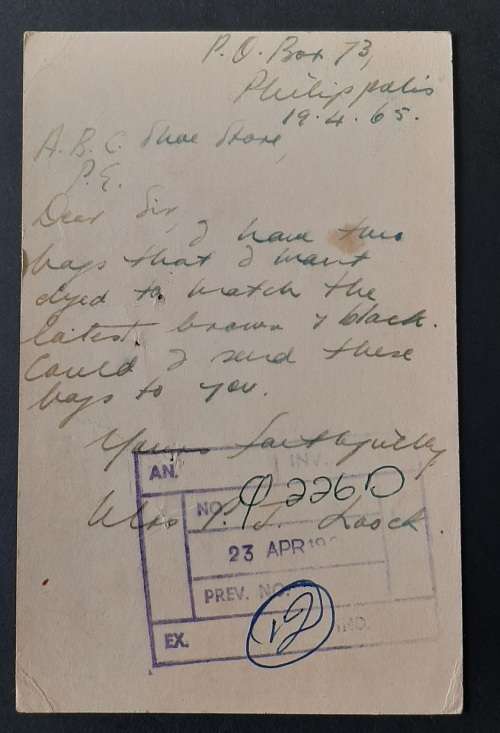 P.O. Box 73,
Philippolis
19.4.65.
A.B.C. Shoe Store,
P.E.
Dear Sir,
I have two
bags that I want
dyed to match the
latest brown & black.
Could I send these
bags to you.
Yours faithfully
AN. INV.
NO.
Mrs P. J. Loock.
23 APR 19
PREV. NO.
EX. IND.